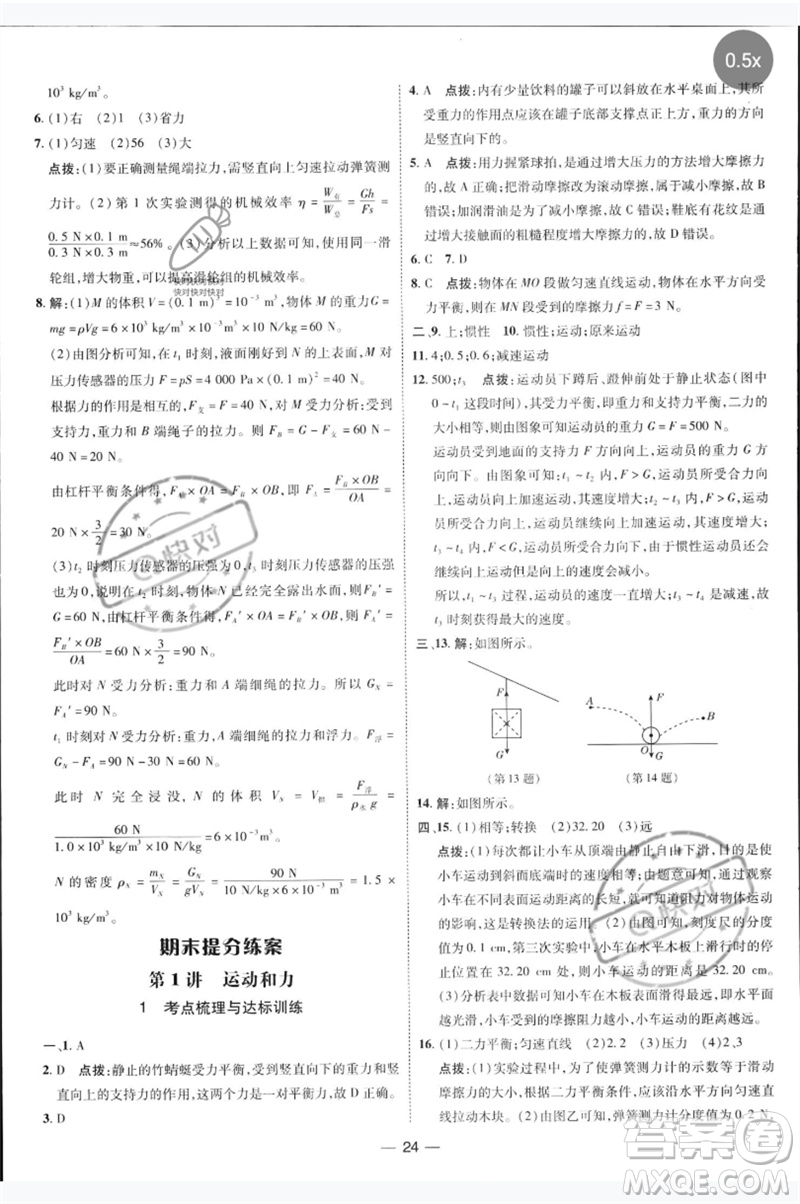 0.5x
10³ kg/m³。
6. (1)右 (2)1 (3)省力
7. (1)匀速 (2)56 (3)大
点拨:(1)要正确测量绳端拉力,需竖直向上匀速拉动弹簧测
力计。(2)第 1 次实验测得的机械效率 η = W有/W总 = Gh/Fs =
0.5 N×0.1 m/0.3 N×0.3 m≈56%。(3)分析以上数据可知,使用同一滑
轮组,增大物重,可以提高滑轮组的机械效率。
8. 解:(1)M 的体积 V=(0.1 m)³=10⁻³ m³,物体 M 的重力G=
mg=ρVg=6×10³ kg/m³×10⁻³ m³×10 N/kg=60 N。
(2)由图分析可知,在 t₁ 时刻,液面刚好到 N 的下表面,M 对
压力传感器的压力 F=pS=4 000 Pa×(0.1 m)²=40 N。
根据力的作用是相互的,F支=F=40 N。对 M 受力分析:受到
支持力,重力和 B 端绳子的拉力。所以 FB=G-F支=60 N-
40 N=20 N。
由杠杆平衡条件得,FA×OA=FB×OB,即 FA=FB×OB/OA=
20 N×3/2=30 N。
(3)t₂ 时刻压力传感器的压强为 0,t₂ 时刻压力传感器的压力
也为 0,t₂ 时刻,物体 N 已经完全露出水面,所以,FB′=
G=60 N,由杠杆平衡条件得,FA′×OA=FB′×OB,即 FA′=
FB′×OB/OA=60 N×3/2=90 N。
此时对 N 受力分析:重力和 A 端细绳的拉力。所以 GN=
FA′=90 N。
t₁ 时刻对 N 受力分析:重力、A 端细绳的拉力和浮力。F浮=
GN-FA=90 N-30 N=60 N。
此时 N 完全浸没 VN=V排=F浮/ρ水g=
60 N/1.0×10³ kg/m³×10 N/kg=6×10⁻³ m³。
N 的密度 ρN=mN/VN=GN/gVN=90 N/10 N/kg×6×10⁻³ m³=1.5×
10³ kg/m³。
期末提分练案
第 1 讲 运动和力
1 考点梳理与达标训练
一、1. A
2. D 点拨:静止的竹蜻蜓受力平衡,受到竖直向下的重力和竖
直向上的支持力的作用,这两个力是一对平衡力,故 D 正确。
3. D
4. A 点拨:内有少量饮料的罐子可以斜放在水平桌面上,其所
受重力的作用点应该在罐子底部支撑点正上方,重力的方向
是竖直向下的。
5. A 点拨:用力握紧球拍,是通过增大压力的方法增大摩擦力
的,故 A 正确;把滑动摩擦改为滚动摩擦,减小摩擦,故 B
错误;加润滑油是为了减小摩擦,故 C 错误;鞋底有花纹是通
过增大接触面的粗糙程度增大摩擦力的,故 D 错误。
6. C 7. D
8. C 点拨:物体在 MO 段做匀速直线运动,在水平方向受
力平衡,所以在 MN 段受到的摩擦力 f=F=3 N。
二、9. 上;惯性 10. 惯性;运动;原来运动
11. 4;0.5;0.6;减速运动
12. 500;t₃ 点拨:运动员下蹲后、蹬伸前处于静止状态(图中
0~t₁ 这段时间),其受力平衡,即重力和支持力平衡,二力的
大小相等,则由图象可知运动员的重力 G=F=500 N。
运动员受到地面的支持力 F 方向向上,运动员的重力 G 方
向向下。由图象可知,t₁~t₂ 过程,F>G,运动员向上加速
运动,运动员向上的速度增大。由图象可知,t₂~t₃ 过程,
F>G,运动员继续向上加速运动,运动员继续向上的速度继
续增大。由图象可知,t₃~t₄ 过程,F<G,由于惯性运动员还会
继续向上运动,但向上的速度会减小。
所以,t₁~t₃ 过程,运动员的速度一直增大,t₃~t₄ 是减小的,
故 t₃ 时刻获得最大的速度。
三、13. 解:如图所示。
F
G
(第 13 题)
A
F
B
O
G
(第 14 题)
14. 解:如图所示。
四、15. (1)相等;转换 (2)32.20 (3)远
点拨:(1)每次都让小车从顶端由静止自由下滑,目的是使小
车运动到斜面底端时的速度相等;由题意可知,通过观察
小车在不同表面运动距离的长短,就可知阻力对物体运动
的影响,这是转换法的运用。(2)由图可知,刻度尺的分度
值为 0.1 cm,第三次实验中,小车在水平木板上滑行时停
在 32.20 cm 处,所以小车在木板上滑行的距离为 32.20 cm。
(3)分析表中数据可知,小车在木板表面运动得最远,平面
越光滑,小车受到的摩擦阻力越小,运动的距离越远。
16. (1)二力平衡;匀速直线 (2)2.4 (3)压力 (4)2,3
点拨:(1)实验中,为了使弹簧测力计的示数等于木块受到
的摩擦力大小,根据二力平衡条件,应该沿水平方向匀速直
线拉动木块。(2)由图乙可知,弹簧测力计的示数为 2.4 N,
24
快对
快对
答案圈
MXQE.COM